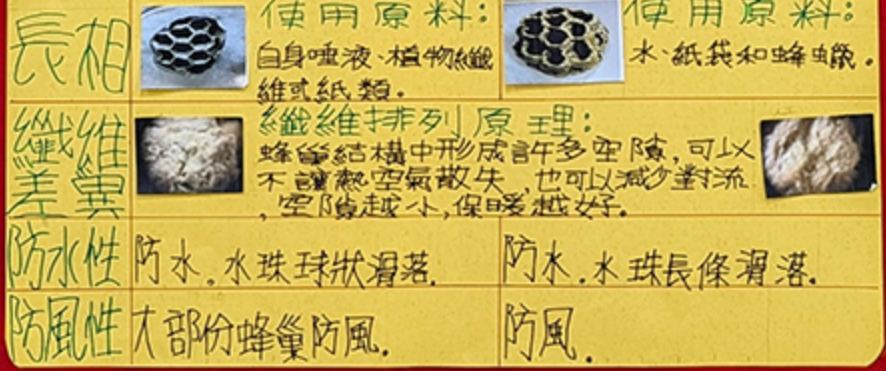 長相
使用原料:
自身唾液、植物纖
維或紙類.
使用原料:
水、紙袋和蜂蠟.
纖維
差異
纖維排列原理:
蜂巢結構中形成許多空隙,可以
不讓熱空氣散失,也可以減少對流
,空隙越小,保暖越好.
防水性
防水.水珠球狀滑落.
防水.水珠長條滑落.
防風性
大部份蜂巢防風.
防風.